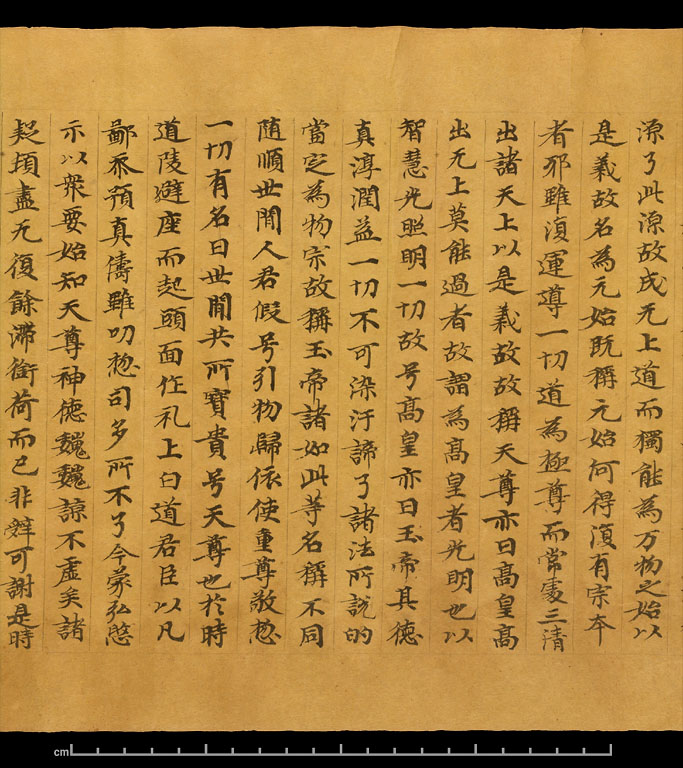 源了此源故成无上道而獨能為万物之始以
是義故名為元始既稱元始何得復有宗本
者耶雖復運導一切道為極尊而常處三清
出諸天上以是義故故稱天尊亦曰高皇高
出无上莫能過者故謂為高皇者光明也以
智慧光照明一切故号高皇亦曰玉帝其德
真淳潤益一切不可染汙諦了諸法所說的
當定為物宗故稱玉帝諸如此等名稱不同
随順世間人君假号引物歸依使重尊敬惣
一切有名曰世間共所寶貴号天尊也於時
道陵避座而起頭面作礼上白道君臣以凡
鄙忝預真儔雖叨惣司多所不了今蒙弘慜
示以衆要始知天尊神德巍巍諒不虛矣諸
疑頓盡无復餘滯銜荷而已非辝可謝是時
cm